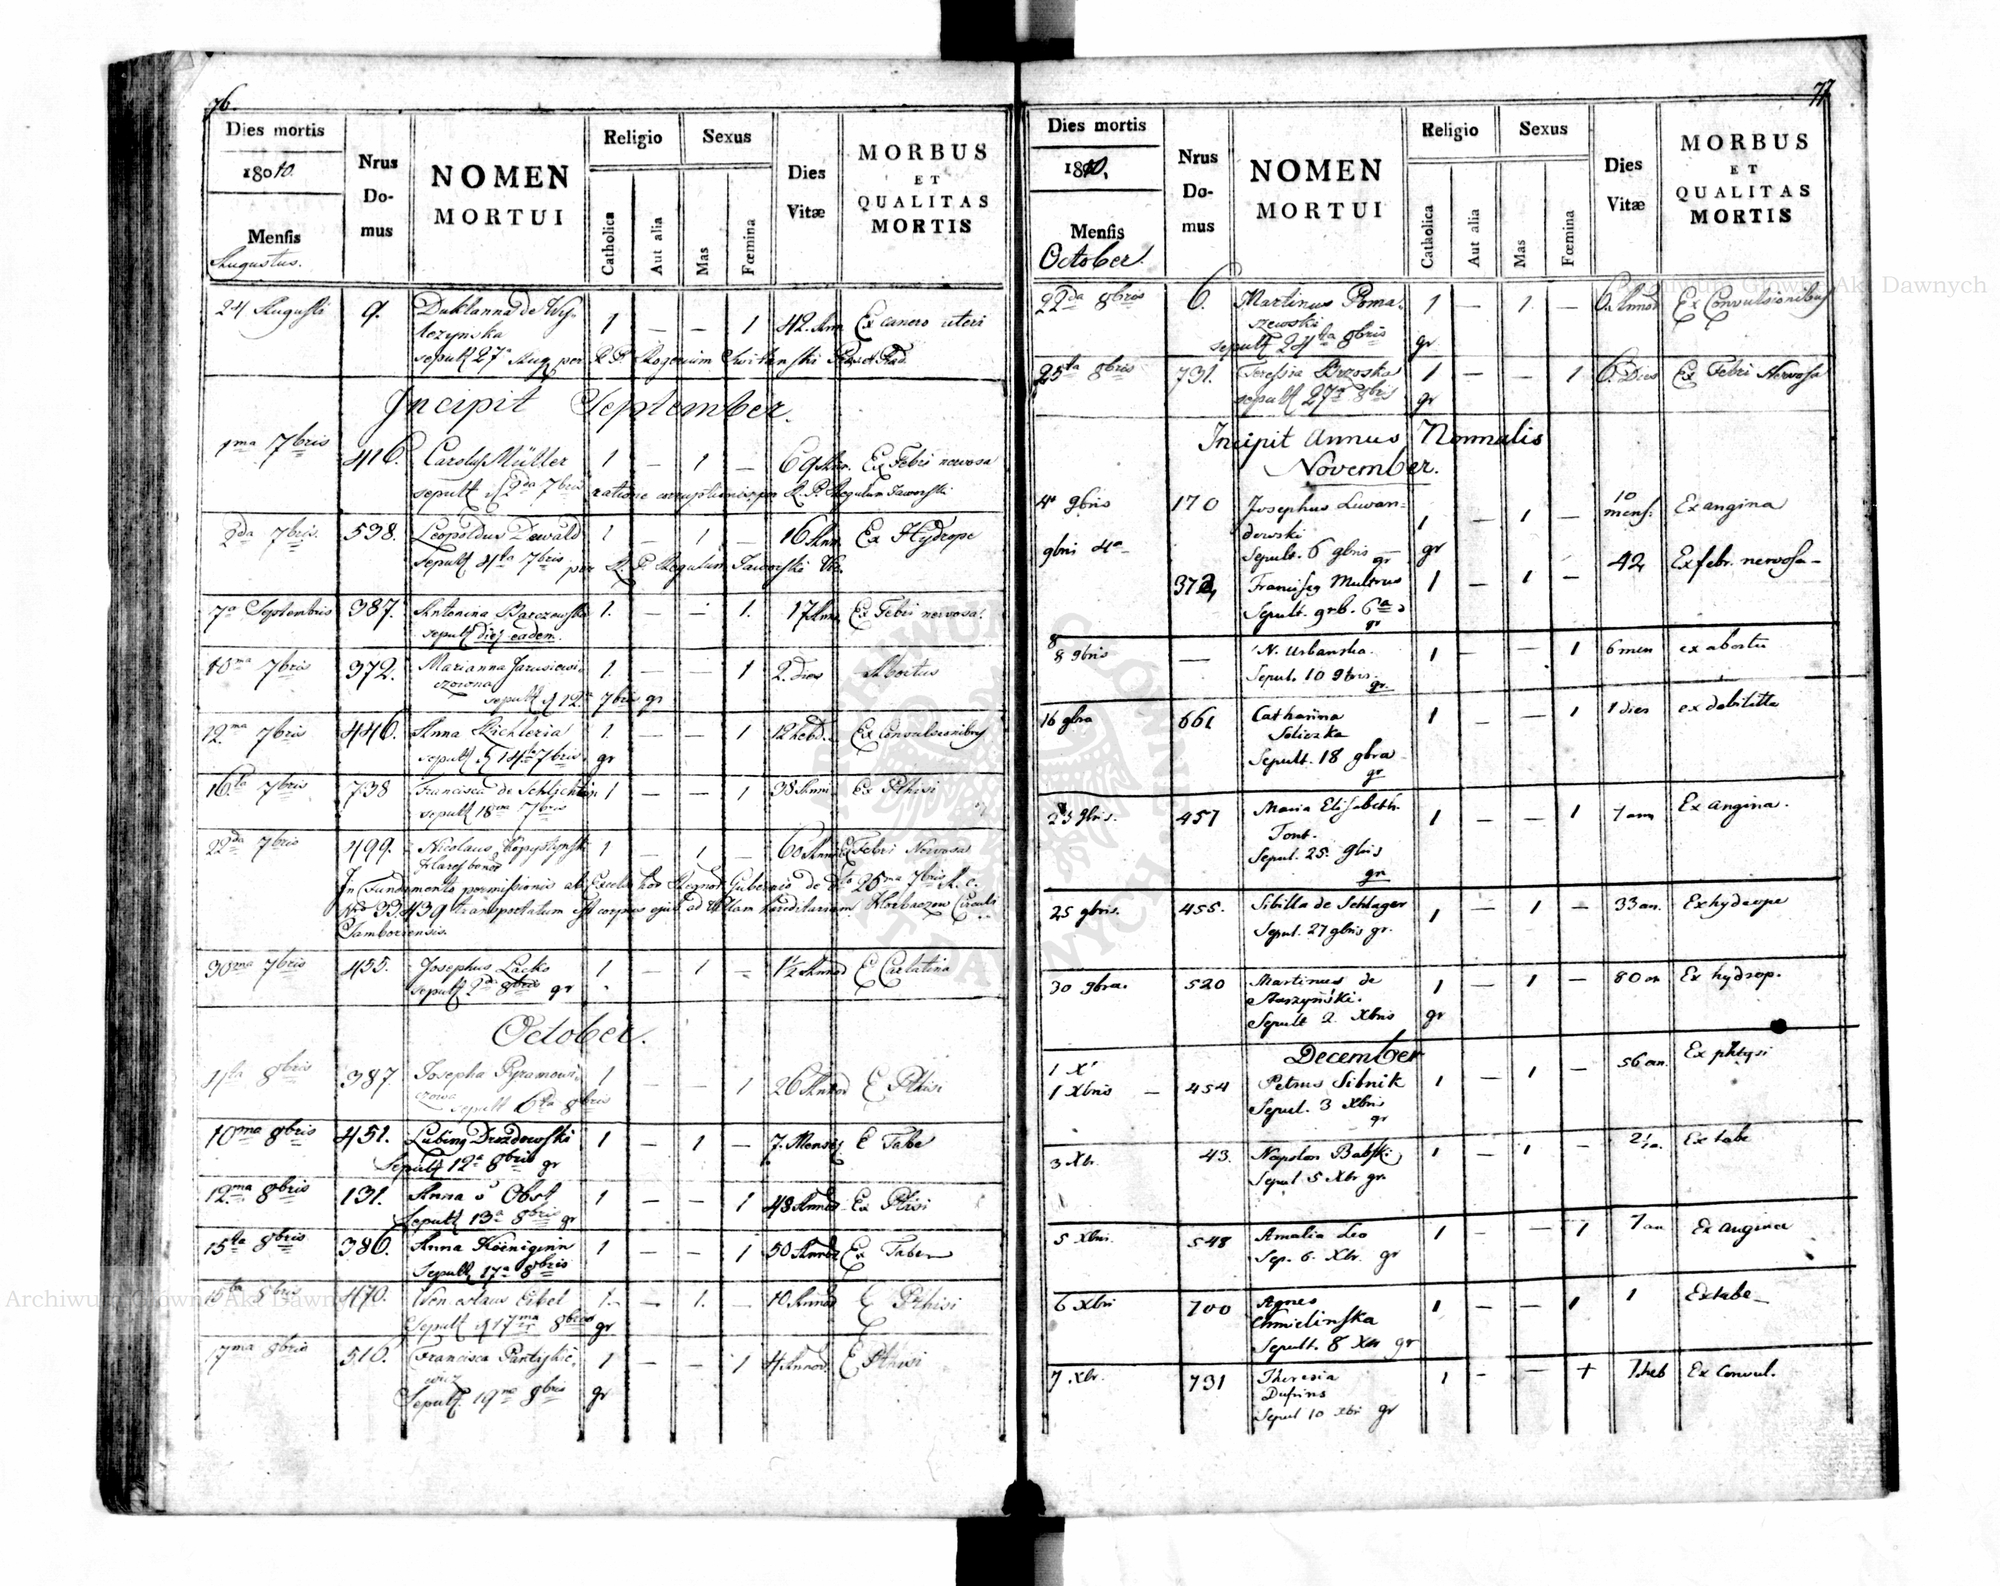 76.
Dies mortis
1810.
Mensis
Augustus.
Nrus
Do-
mus
NOMEN
MORTUI
Religio
Catholica
Aut alia
Sexus
Mas
Fœmina
Dies
Vitæ
MORBUS
ET
QUALITAS
MORTIS
24 Augusti 9. de Wy- 1 — — 1 42 Ann Ex cancro uteri
sepult 27a Aug per R. P.
Incipit September.
1ma 7bris 416. Müller 1 — 1 — 69 Ann. Ex Febri nervosa
sepult 2da 7bris ratione corruptionis per R. P. Regulum Jaworski
2da 7bris. 538. Leopoldus Dewald 1 — 1 — 16 Ann. Ex Hydrope
Sepult 4ta 7bris per R. P. Regulum Jaworski
7a Septembris 387. Antonina 1. — — 1. 17 Ann. Ex Febri nervosa.
sepult diej eadem.
10ma 7bris 372. Marianna Jarusiewi- 1. — — 1 2. dies Abortus
czowna
sepult 12a 7bris gr
12ma 7bris 446. Anna Richleria 1. — — 1 12 hebd. Ex Convulsionibus
sepult 14ta 7bris. gr
16ta 7bris 738 Francisca de 1 — — 1 38 Anni Ex Pthisi
sepult 18ma 7bris
22da 7bris 499. Nicolaus 1 — 1 — 60 Ann Ex Febri Nervosa
In Fundamento permissionis ab Excelso Regnor Gubernio de 25ma 7bris A. c.
Nro 33,439 transportatum est corpus ejus ad Villam hereditariam Circuli
Samboriensis.
30ma 7bris 455. Josephus Lacko 1 1 — 1½ Annor E Carlatina
sepult 2da 8bris gr
October.
4ta 8bris 387 Josepha 1 — — 1 26 Annor E Pthisi
czowa
sepult 6ta 8bris
10ma 8bris 451. 1 — 1 — 7. Menses E Tabe
Sepult 12a 8bris gr
12ma 8bris 131. Anna 1 — — 1 48 Annor Ex Ptisi
Sepult 13a 8bris gr
15ta 8bris 386. Anna Köeniginn 1 — — 1 50 Annor Ex Tabe
Sepult 17a 8bris
15ta 8bris 470. Eibel 1. — 1. — 10 Annor E Pthisi
Sepult 17ma 8bris gr
17ma 8bris 516. Francisca 1 — — 1 4 Annor. E Pthisi
wicz
Sepult 19na 8bris gr
77
Dies mortis
1810.
Mensis
October
Nrus
Do-
mus
NOMEN
MORTUI
Religio
Catholica
Aut alia
Sexus
Mas
Fœmina
Dies
Vitæ
MORBUS
ET
QUALITAS
MORTIS
22da 8bris 6. Martinus Poma- 1 — 1. — 6. Annor Ex Convulsionibus
szewski
sepult 24ta 8bris gr
25ta 8bris 731. Teressia Brzoska 1 — — 1 6. Dies Ex Febri Nervosa
sepult 27a 8bris gr
Incipit Annus Normalis
November.
4a 9bris 170 Josephus Lewan- 1 — 1 — 10 mens. Ex angina
dowski
Sepult. 6 9bris gr gr
9bri 4a 372 Multrus 1 — 1 — 42 Ex febr. nervosa —
Sepult. 9rb. 6a
gr
8
8 9bris — N. Urbanska. 1 — — 1 6 men ex abortu
Sepul. 10 9bris.
gr.
16 9bra 661 Catharina 1 — — 1 1 dies ex debilitte
Soliczka
Sepult. 18 9bra
gr
23 9bris. 457 Maria Elisabeth. 1 — — 1 7 ann Ex angina.
Font.
Sepul. 25. 9bris
gr
25 9bris. 455. Sibilla de Schlager 1 — 1 — 33 an. Ex hydrope
Sepul. 27 9bris gr.
30 9bra. 520 Martinus de 1 — 1 — 80 an Ex hydrop.
Starzyński.
Sepult 2 Xbris gr
December
1 X'
1 Xbris — 454 Petrus Sibnik 1 — 1 — 56 an. Ex phtysi
Sepul. 3 Xbris
gr
3 Xbr. 43. Napolon Babski 1 — 1 — Ex tabe
Sepul 5 Xbr gr.
5 Xbri. 548 Amalia Leo 1 — — 1 7 an Ex angina
Sep. 6. Xbr. gr
6 Xbri 700 Agnes 1 — — 1 1 Ex tabe —
Chmielinska
Sepult. 8 Xbr gr
7 Xbr. 731 Theresia 1 — — + 7. heb Ex Convul.
Dufrins
Sepul 10 Xbri gr
Archiwum Główne Akt Dawnych
Archiwum Główne Akt Dawnych
ARCHIWUM GŁÓWNE AKT DAWNYCH